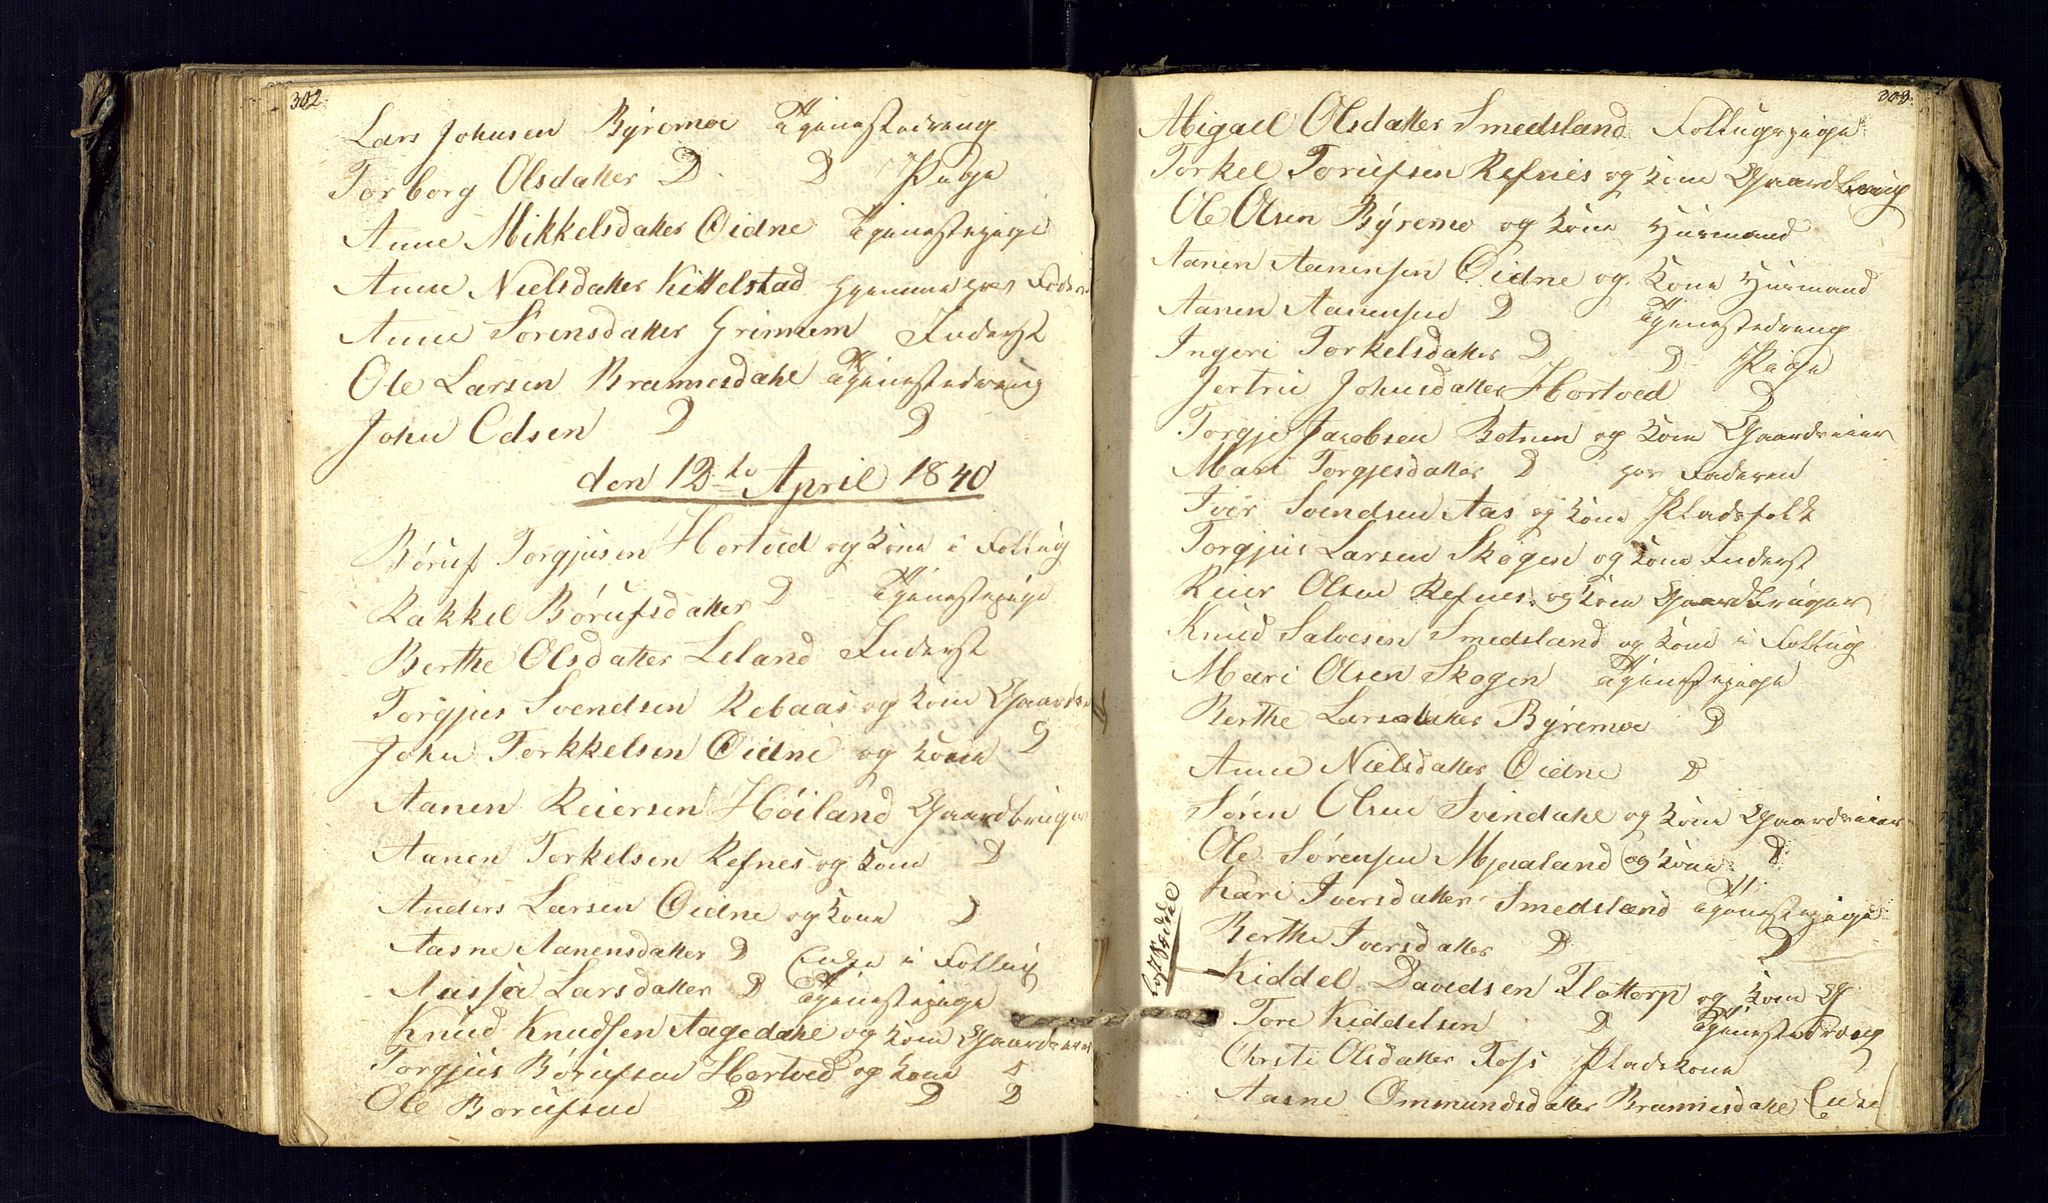 302
Lars Johnsen Byremoe Tjenestedreng
Torborg Olsdatter D D Pige
Anne Mikkelsdatter Øidne Tjenestepige
Anne Nielsdatter Kittelstad hjemme hos Fader
Anne Sørensdatter Grimem Inderst
Ole Larsen Brannesdahl Tjenestedreng
John Edsen D D
den 12te April 1840
Børuf Torgjusen Hortved og Kone i Follug
Rakkel Børufsdatter D Tjenestepige
Berthe Olsdatter Leland Inderst
Torgjus Svendsen Rebaas og Kone
John Torkkelsen Øidne og Kone D
Aanen Reiersen Høiland Gaardbruger
Aanen Torkelsen Refnes og Kone D
Anders Larsen Øidne og Kone D
Aasne Aanensdatter D Enke i Follug
Larsdatter D Tjenestepige
Knud Knudsen Aagedahl og Kone Gaardeier
Torgjus Børufsen Hortved og Kone
Ole Børufsen D D D
303
Abigael Olsdatter Smedsland Follugspige
Torkel Torufsen Refnes og Kone Gaardbrug
Ole Olsen Byremo og Kone Husmand
Aanen Aanensen Øidne og Kone Husmand
Aanen Aanensen D Tjenestedreng
Ingeri Torkelsdatter D D Pige
Jertrü Johnsdatter Hortved D
Torgje Jacobsen Botnen og Kone Gaardeier
Mari Torgjesdatter D hos Faderen
Iver Svendsen Aas og Kone Pladsfolk
Torgjus Larsen Skogen og Kone Inderst
Reier Olsen Refnes og Kone Gaardbruger
Knud Salvesen Smedsland og Kone i Follug
Mari Olsen Skogen Tjenestepige
Berthe Larsdatter Byremoe D
Anne Nielsdatter Øidne D
Søren Olsen Svindahl og Kone Gaardeier
Ole Sørensen Mjaaland og Kone D
Kari Iversdatter Smedsland Tjenestepige
Berthe Iversdatter D D
Kiddel Davidsen Flottorp og Kone G
Tore Kiddelsen D Tjenestedreng
Olsdatter Foss Pladskone
Aasne Ommundsdatter Brannesdahl Enke